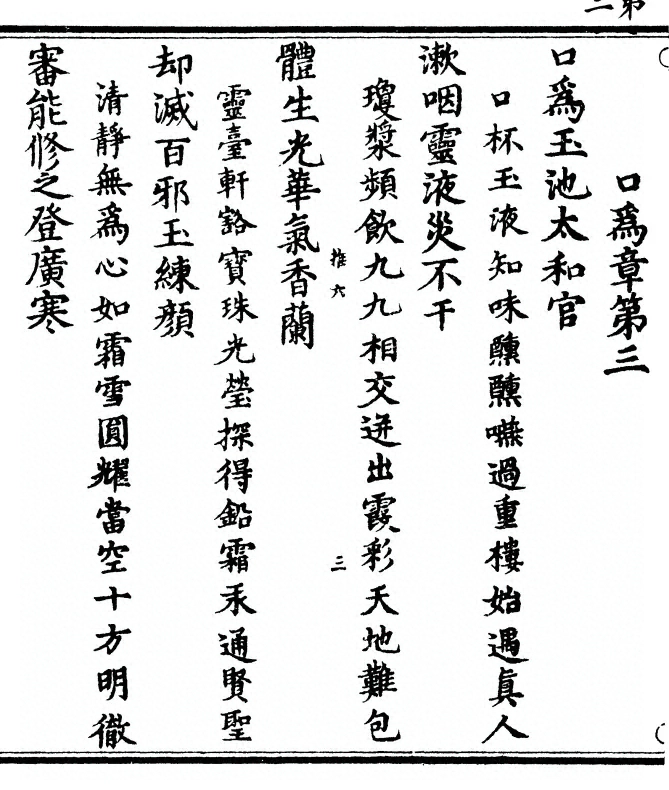 口爲章第三
口爲玉池太和官
口杯玉液知味醺醺嚥過重樓始遇眞人
漱咽靈液災不干
瓊漿頻飲九九相交迸出霞彩天地難包
推六 三
體生光華氣香蘭
靈臺軒豁寶珠光瑩探得鉛霜汞通賢聖
却滅百邪玉練顔
清靜無爲心如霜雪圓耀當空十方明徹
審能修之登廣寒